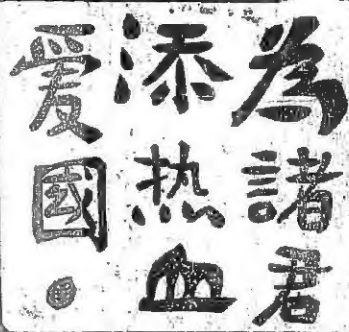 為諸君
添热血
爱國。